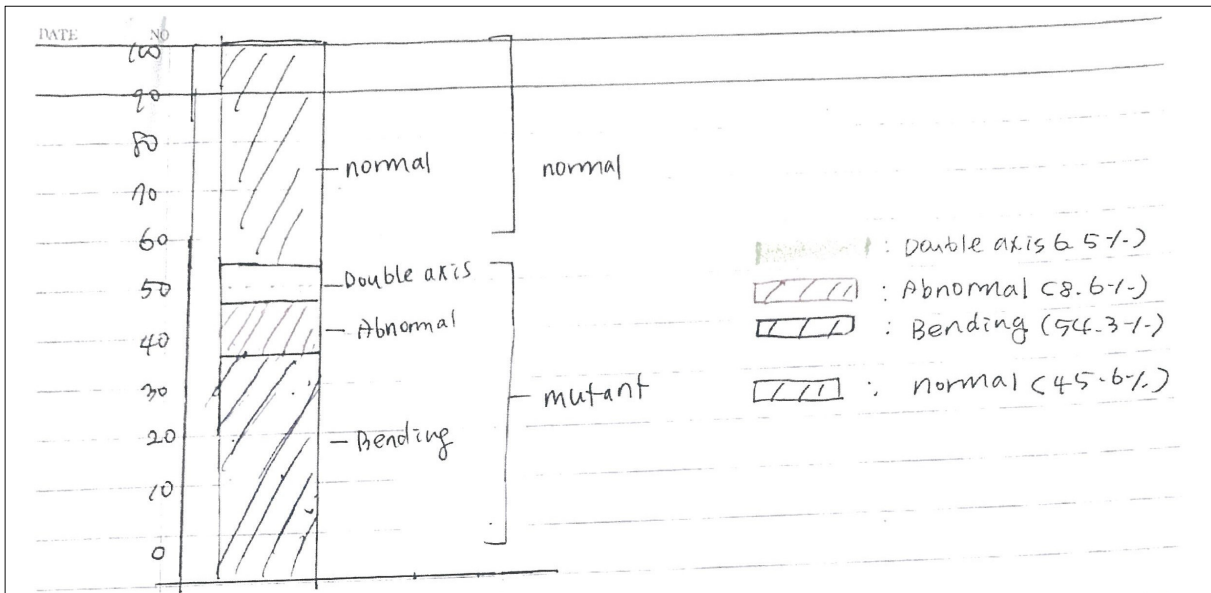 DATE NO
100
90
80
70
60
50
40
30
20
10
0
normal
Double axis
Abnormal
Bending
normal
mutant
: Double axis 6.5%)
: Abnormal (8.6%)
: Bending (54.3%)
: normal (45.6%)